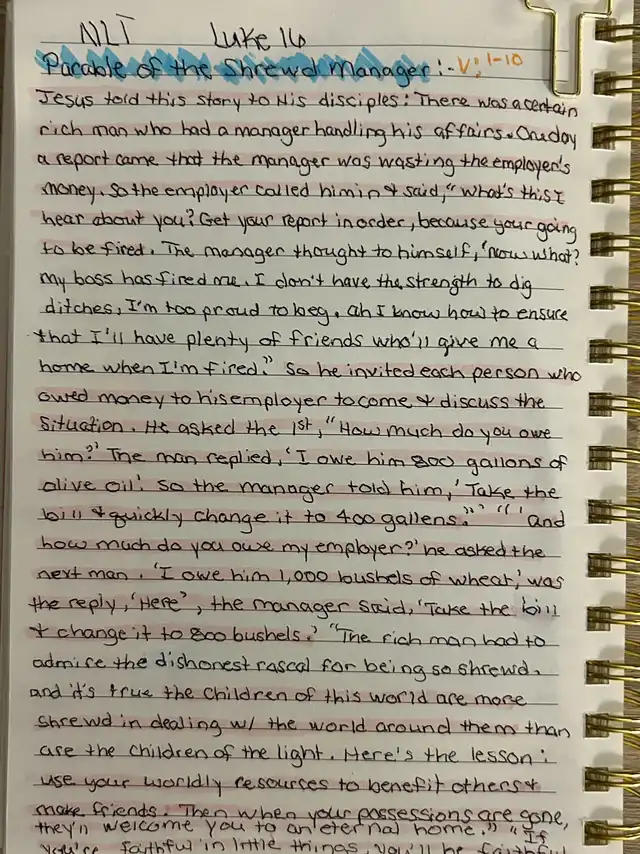 NLT Luke 16
Parable of the Shrewd Manager:- V:1-10
Jesus told this story to His disciples: There was a certain
rich man who had a manager handling his affairs. One day
a report came that the manager was wasting the employer's
money. So the employer called him in & said, "What's this I
hear about you? Get your report in order, because your going
to be fired. The manager thought to himself, 'Now what?
My boss has fired me. I don't have the strength to dig
ditches, I'm too proud to beg. ah I know how to ensure
that I'll have plenty of friends who'll give me a
home when I'm fired." So he invited each person who
owed money to his employer to come & discuss the
situation. He asked the 1st, "How much do you owe
him?' The man replied, 'I owe him 800 gallons of
olive oil'. So the manager told him, 'Take the
bill & quickly change it to 400 gallens."' "'and
how much do you owe my employer?' he asked the
next man. 'I owe him 1,000 bushels of wheat,' was
the reply, 'Here', the manager said, 'Take the bill
& change it to 800 bushels.' "The rich man had to
admire the dishonest rascal for being so shrewd.
and it's true the children of this world are more
shrewd in dealing w/ the world around them than
are the children of the light. Here's the lesson:
use your worldly resources to benefit others &
make friends. Then when your possessions are gone,
they'll welcome you to an eternal home." "If
you're faithful in little things, you'll be faithful